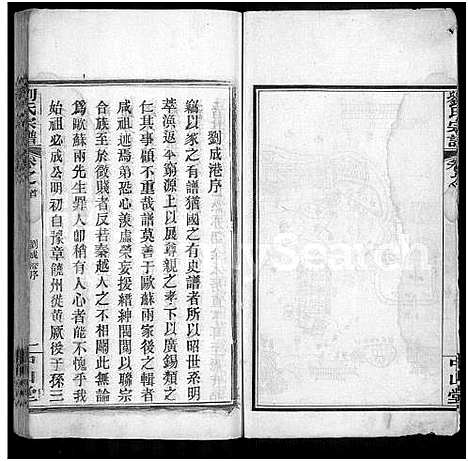 劉成港序
竊以家之有譜猶國之有史譜者所以昭世系明
萃渙返本窮源上以展尊親之孝下以廣錫類之
仁其事顧不重哉譜莫善于歐蘇兩家後之輯者
咸祖述焉弟恐心羨虛榮妄援縉紳閥閱以聯宗
合族至于微賤者反若秦越人之不相關此無論
為歐蘇兩先生罪人即稍有人心者能不愧乎我
始祖必成公明初自豫章饒州從黃厥後于孫三
劉氏宗譜
卷之首
劉成港序
一
中山堂
劉氏宗譜
卷之首
中山堂